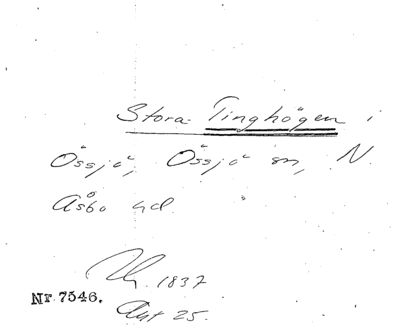 Stora Tinghögen i
Össjö, Össjö sn, N.
Åsbo hd.
1837
Nr 7546.
Ant 25.